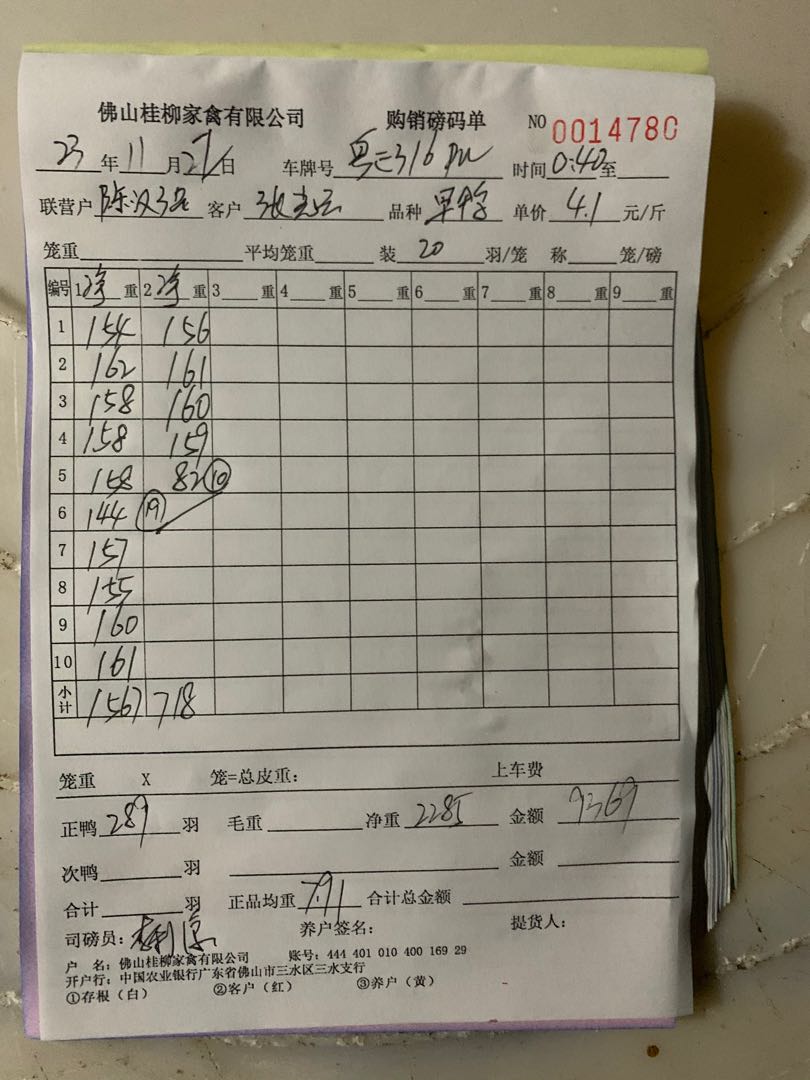 佛山桂柳家禽有限公司 购销磅码单 NO 0014780
23 年 11 月 27 日 车牌号 时间 0:40 至
联营户 陈汉 客户 张 品种 单价 4.1 元/斤
笼重 平均笼重 装 20 羽/笼 称 笼/磅
编号 1 净 重 2 净 重 3 重 4 重 5 重 6 重 7 重 8 重 9 重
1 154 156
2 162 161
3 158 160
4 158 159
5 158 82 ⑩
6 144 ⑲
7 157
8 155
9 160
10 161
小计 1567 718
笼重 X 笼=总皮重: 上车费
正鸭 289 羽 毛重 净重 2285 金额 9369
次鸭 羽 金额
合计 羽 正品均重 7.91 合计总金额
司磅员: 养户签名: 提货人:
户 名: 佛山桂柳家禽有限公司 账号: 444 401 010 400 169 29
开户行: 中国农业银行广东省佛山市三水区三水支行
①存根（白） ②客户（红） ③养户（黄）